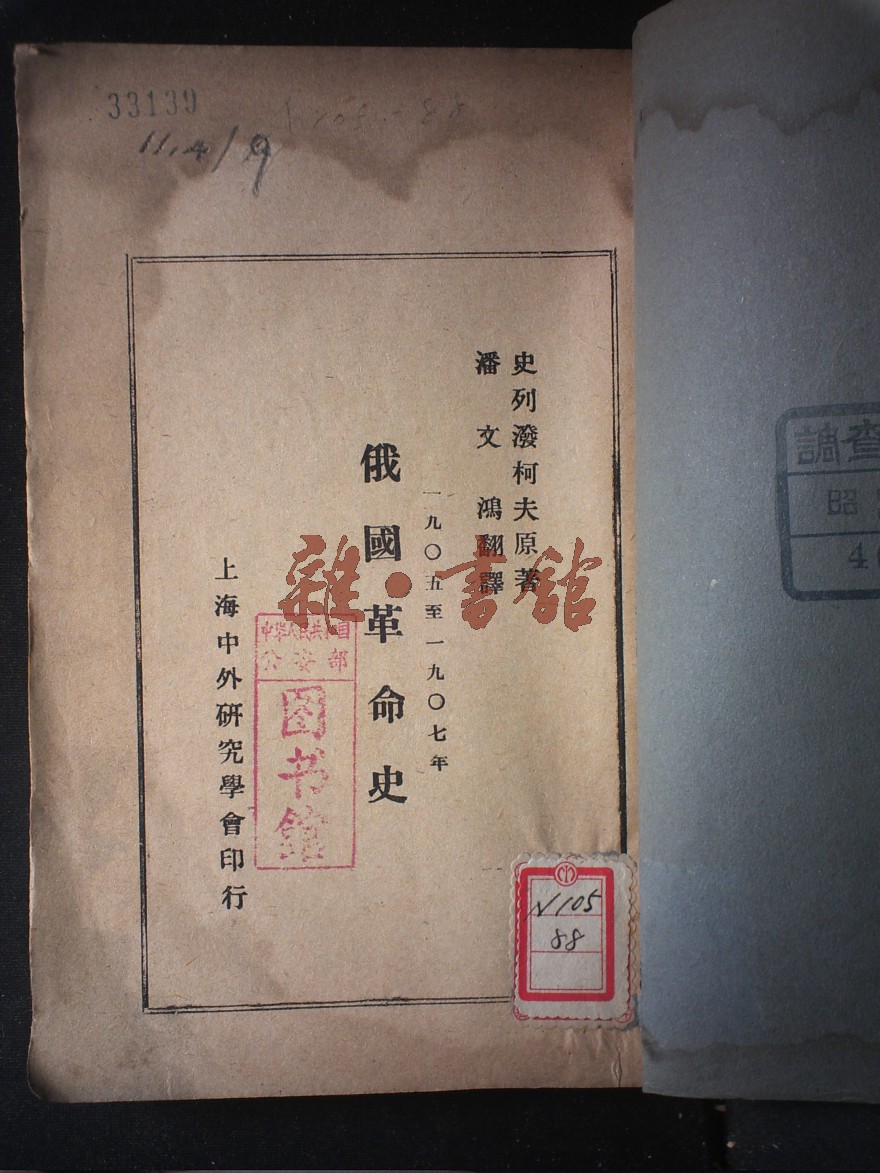 33139
11.4/9
史列潑柯夫原著
潘文鴻翻譯
一九〇五至一九〇七年
俄國革命史
上海中外研究學會印行
雜·書館
中华人民共和国
公安部
图书馆
N105
88
調查
昭
4